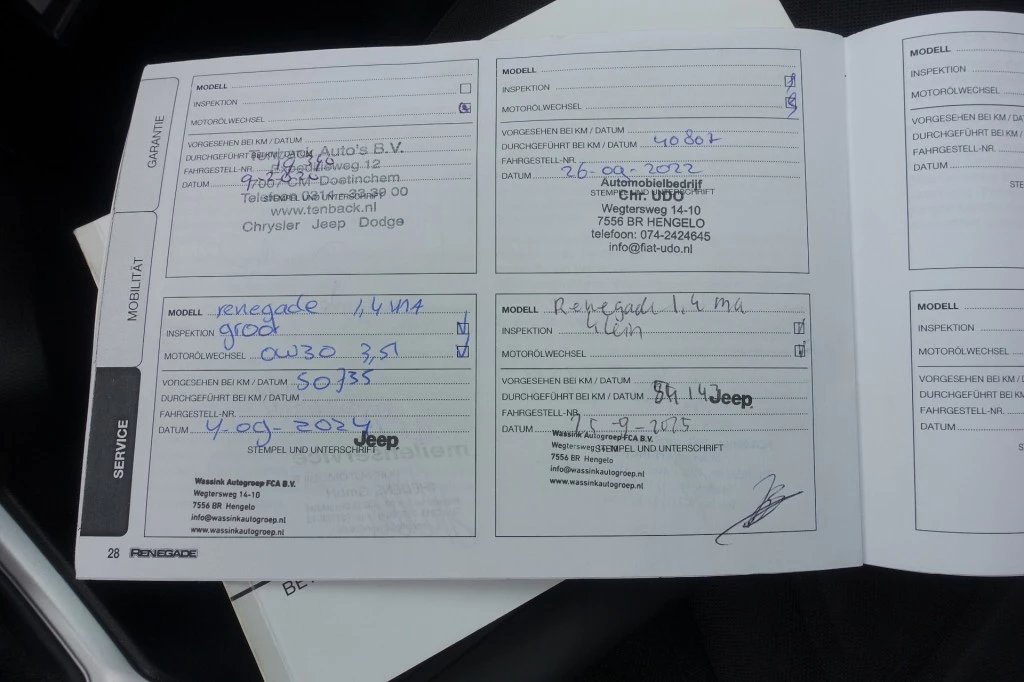 GARANTIE
MOBILITÄT
SERVICE
MODELL
INSPEKTION
MOTORÖLWECHSEL
VORGESEHEN BEI KM / DATUM
DURCHGEFÜHRT BEI KM / DATUM
FAHRGESTELL-NR.
DATUM
STEMPEL UND UNTERSCHRIFT
Auto's B.V.
12
7007 CM Doetinchem
Telefoon 0314 - 33 39 00
www.tenback.nl
Chrysler Jeep Dodge
MODELL
INSPEKTION
MOTORÖLWECHSEL
VORGESEHEN BEI KM / DATUM
DURCHGEFÜHRT BEI KM / DATUM 40807
FAHRGESTELL-NR.
DATUM 26-09-2022
STEMPEL UND UNTERSCHRIFT
Automobielbedrijf
Chr. UDO
Wegtersweg 14-10
7556 BR HENGELO
telefoon: 074-2424645
info@fiat-udo.nl
MODELL renegade 1,4 MA
INSPEKTION groot
MOTORÖLWECHSEL 0W30 3,5l
VORGESEHEN BEI KM / DATUM 50735
DURCHGEFÜHRT BEI KM / DATUM
FAHRGESTELL-NR.
DATUM 4-09-2024
STEMPEL UND UNTERSCHRIFT
Jeep
Wassink Autogroep FCA B.V.
Wegtersweg 14-10
7556 BR Hengelo
info@wassinkautogroep.nl
www.wassinkautogroep.nl
MODELL Renegade 1,4 ma
INSPEKTION klein
MOTORÖLWECHSEL
VORGESEHEN BEI KM / DATUM
DURCHGEFÜHRT BEI KM / DATUM
FAHRGESTELL-NR.
DATUM 25-9-2025
STEMPEL UND UNTERSCHRIFT
Jeep
Wassink Autogroep FCA B.V.
Wegtersweg
7556 BR Hengelo
info@wassinkautogroep.nl
www.wassinkautogroep.nl
28 RENEGADE
MODELL
INSPEKTION
MOTORÖLWECHSEL
VORGESEHEN BEI KM / DA
DURCHGEFÜHRT BEI KM /
FAHRGESTELL-NR.
DATUM
MODELL
INSPEKTION
MOTORÖLWECHSEL
VORGESEHEN BEI KM / D
DURCHGEFÜHRT BEI KM
FAHRGESTELL-NR.
DATUM